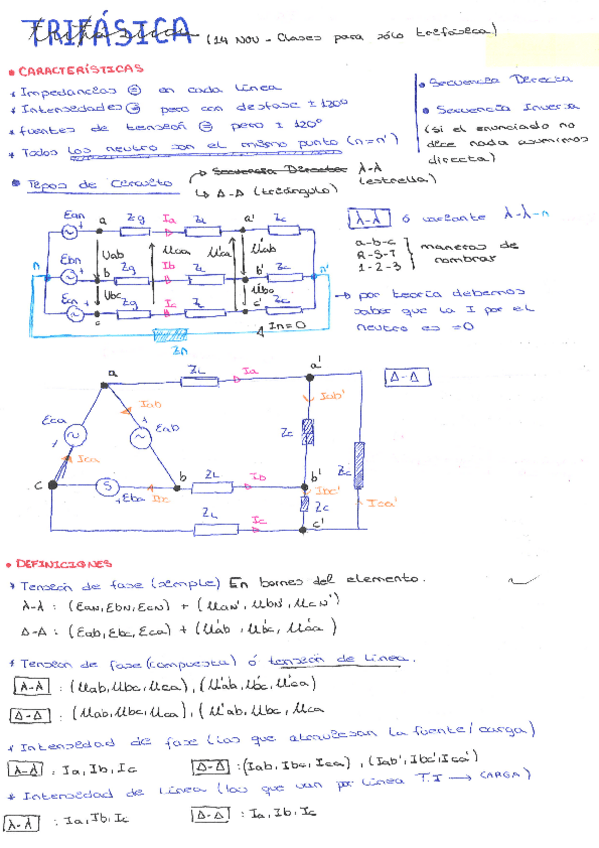 TRIFÁSICA (14 NOV - Clases para sólo trifásica)
• CARACTERÍSTICAS
* Impedancias = en cada línea
* Intensidades = pero con desfase ± 120°
* fuentes de tensión = pero ± 120°
* Todos los neutro son el mismo punto (n=n')
• Secuencia Directa
• Secuencia Inversa
(si el enunciado no
dice nada asumimos
directa)
• Tipos de Circuito
Secuencia Directa λ-λ (estrella)
↳ Δ-Δ (triángulo)
Ean a Zg Ia ZL a' Zc
Uab Uca U'ca U'ab
n Ebn b Zg Ib ZL b' Zc n'
Ubc U'bc
Ecn c Zg Ic ZL c' Zc
In=0
Zn
λ-λ ó variante λ-λ-n
a-b-c
R-S-T
1-2-3
maneras de
nombrar
→ por teoría debemos
saber que la I por el
neutro es =0
a ZL Ia a'
Δ-Δ
Iab Iab'
Eca Eab Zc
Ica
c S Eba Ibc b ZL Ib b' Zc
Ibc' Ica'
Zc
ZL Ic c'
• DEFINICIONES
* Tensión de fase (simple) En bornes del elemento.
λ-λ : (Ean, Ebn, Ecn) + (Uan', Ubn', Ucn')
Δ-Δ : (Eab, Ebc, Eca) + (U'ab, U'bc, U'ca)
* Tensión de fase (compuesta) ó tensión de línea.
λ-λ : (Uab, Ubc, Uca), (U'ab, U'bc, U'ca)
Δ-Δ : (Uab, Ubc, Uca), (U'ab, Ubc, Uca
* Intensidad de fase (las que atraviesan la fuente/carga)
λ-λ : Ia, Ib, Ic
Δ-Δ : (Iab, Ibc, Ica), (Iab', Ibc', Ica')
* Intensidad de línea (las que van por línea T.I → CARGA)
λ-λ : Ia, Ib, Ic
Δ-Δ : Ia, Ib, Ic